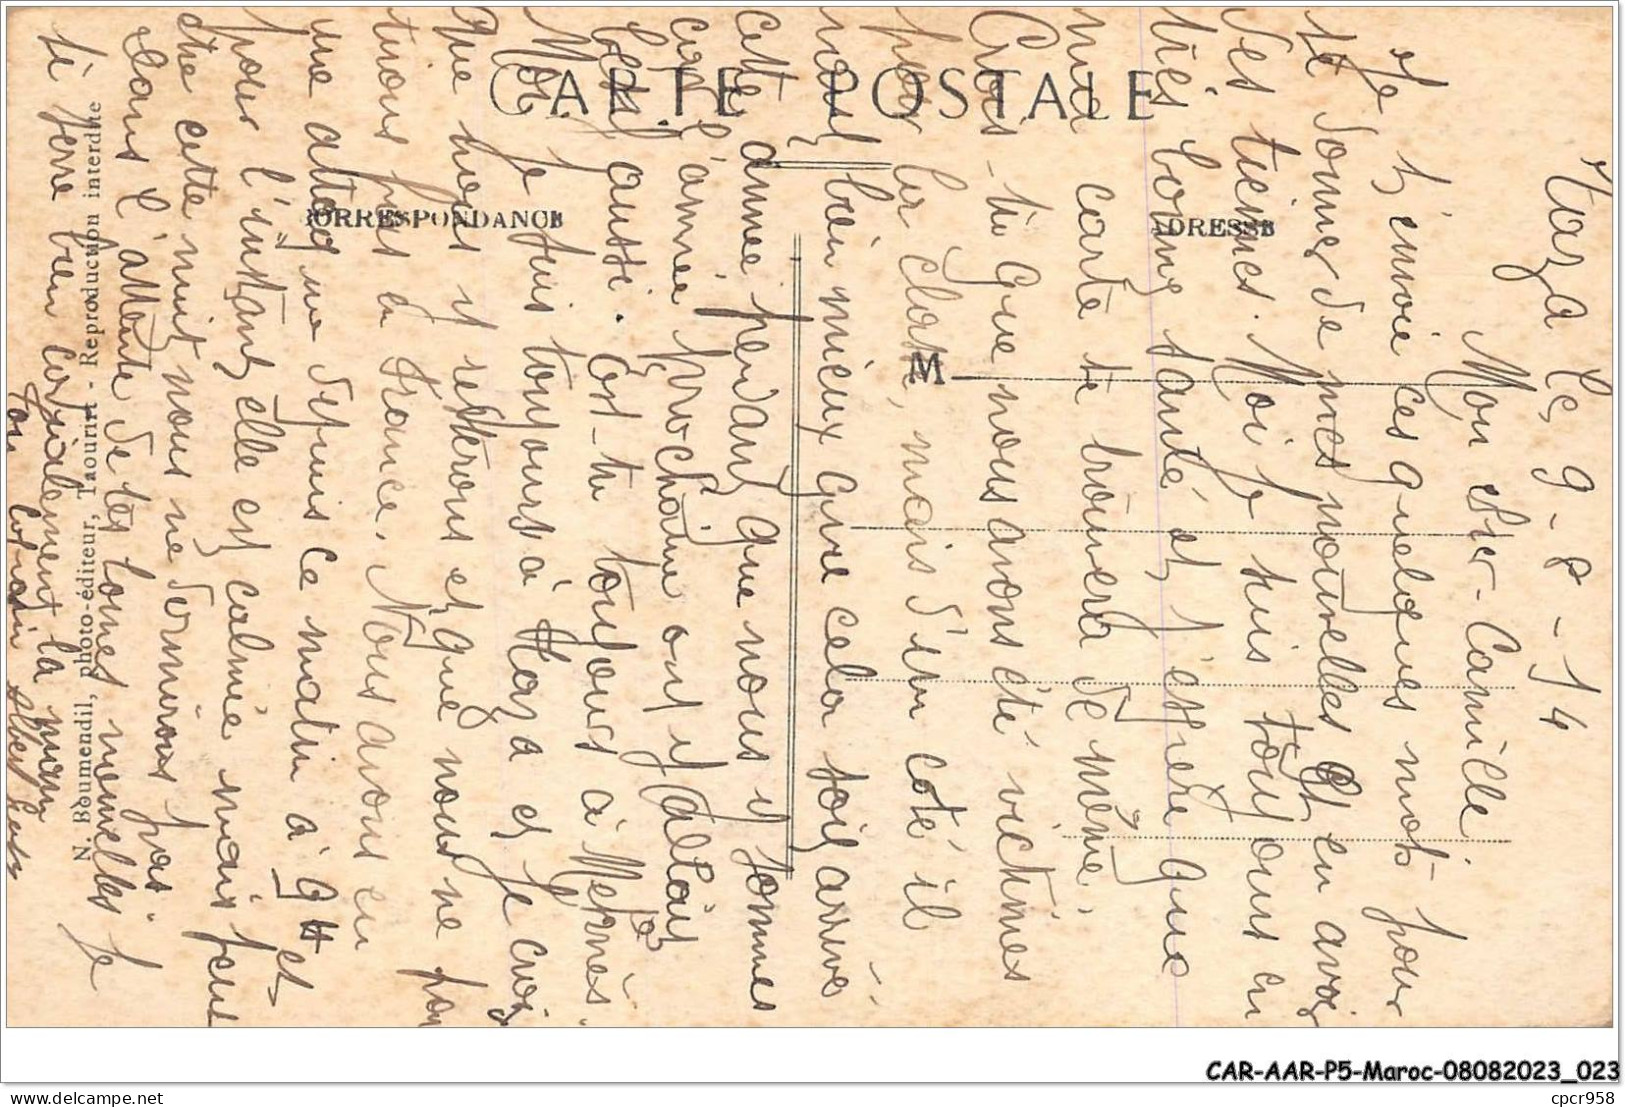 Taza le, 9-8-14
Mon cher Camille
Je t'envoie ces quelques mots pour
te donner de mes nouvelles et en avoir
des tiennes. Moi je suis toujours en
très bonne santé et j'espère que
ma carte te trouvera de même.
Crois-tu que nous avons été victimes
pour la classe, mais d'un coté il
vaut bien mieux que cela soit arrivé
cette année pendant que nous y sommes
car l'année prochaine on y allait
aussi. Es-tu toujours à Meknès.
Moi je suis toujours à Taza et je crois
que nous y resterons et que nous ne
pas en France. Nous avons eu
une attaque depuis ce matin à 9H et
pour l'instant elle est calmée mais peut
être cette nuit nous ne dormirons pas.
Dans l'attente de tes bonnes nouvelles je
te serre bien cordialement la main
Ton copain Albert
CARTE POSTALE
CORRESPONDANCE
ADRESSE
M
N. Boumendil, photo-éditeur, Taourirt - Reproduction interdite
CAR-AAR-P5-Maroc-08082023_023
cpcr958